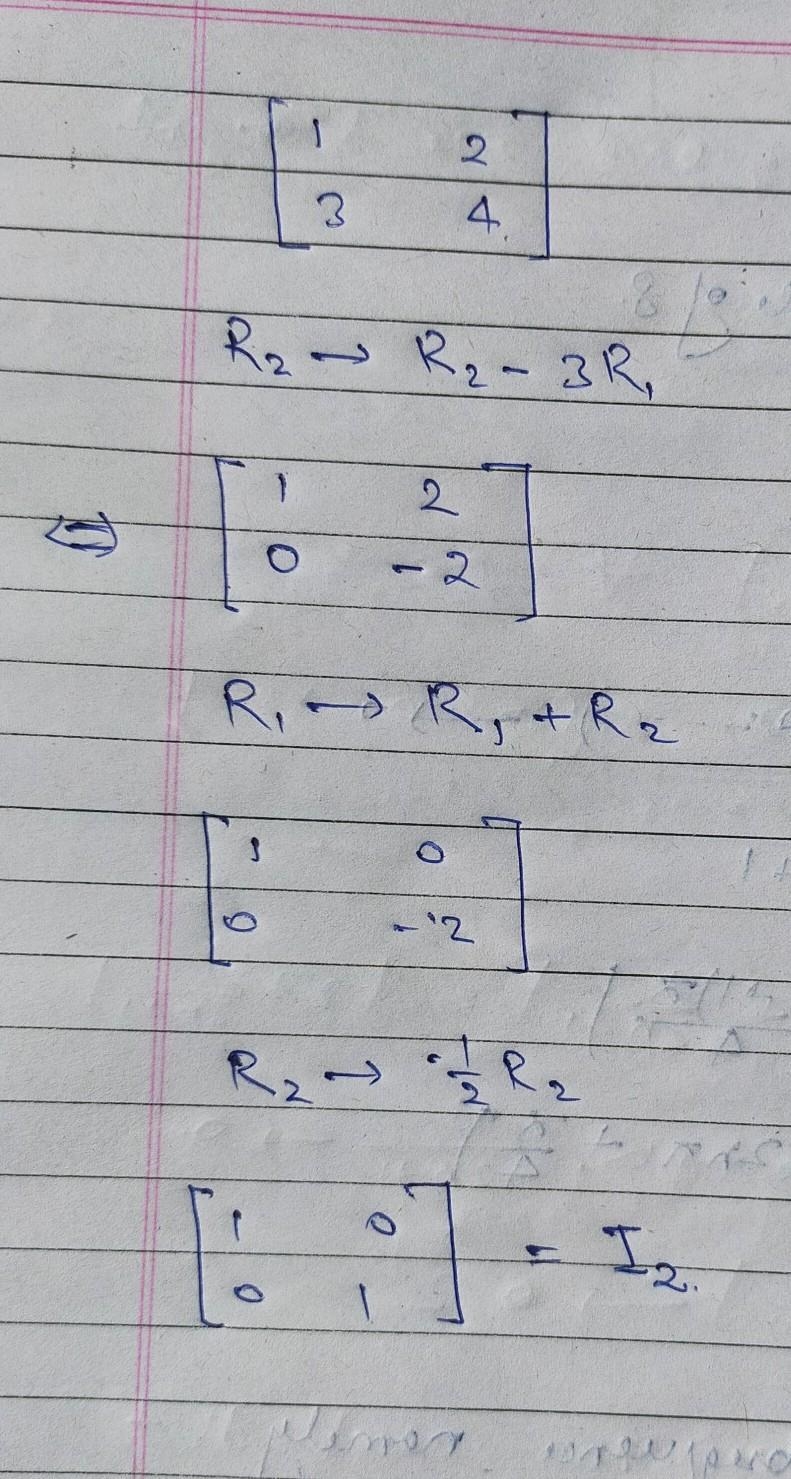 [1 2
3 4]
R₂ → R₂ - 3R₁
⇔ [1 2
0 -2]
R₁ → R₁ + R₂
[1 0
0 -2]
R₂ → -½ R₂
[1 0
0 1] = I₂.